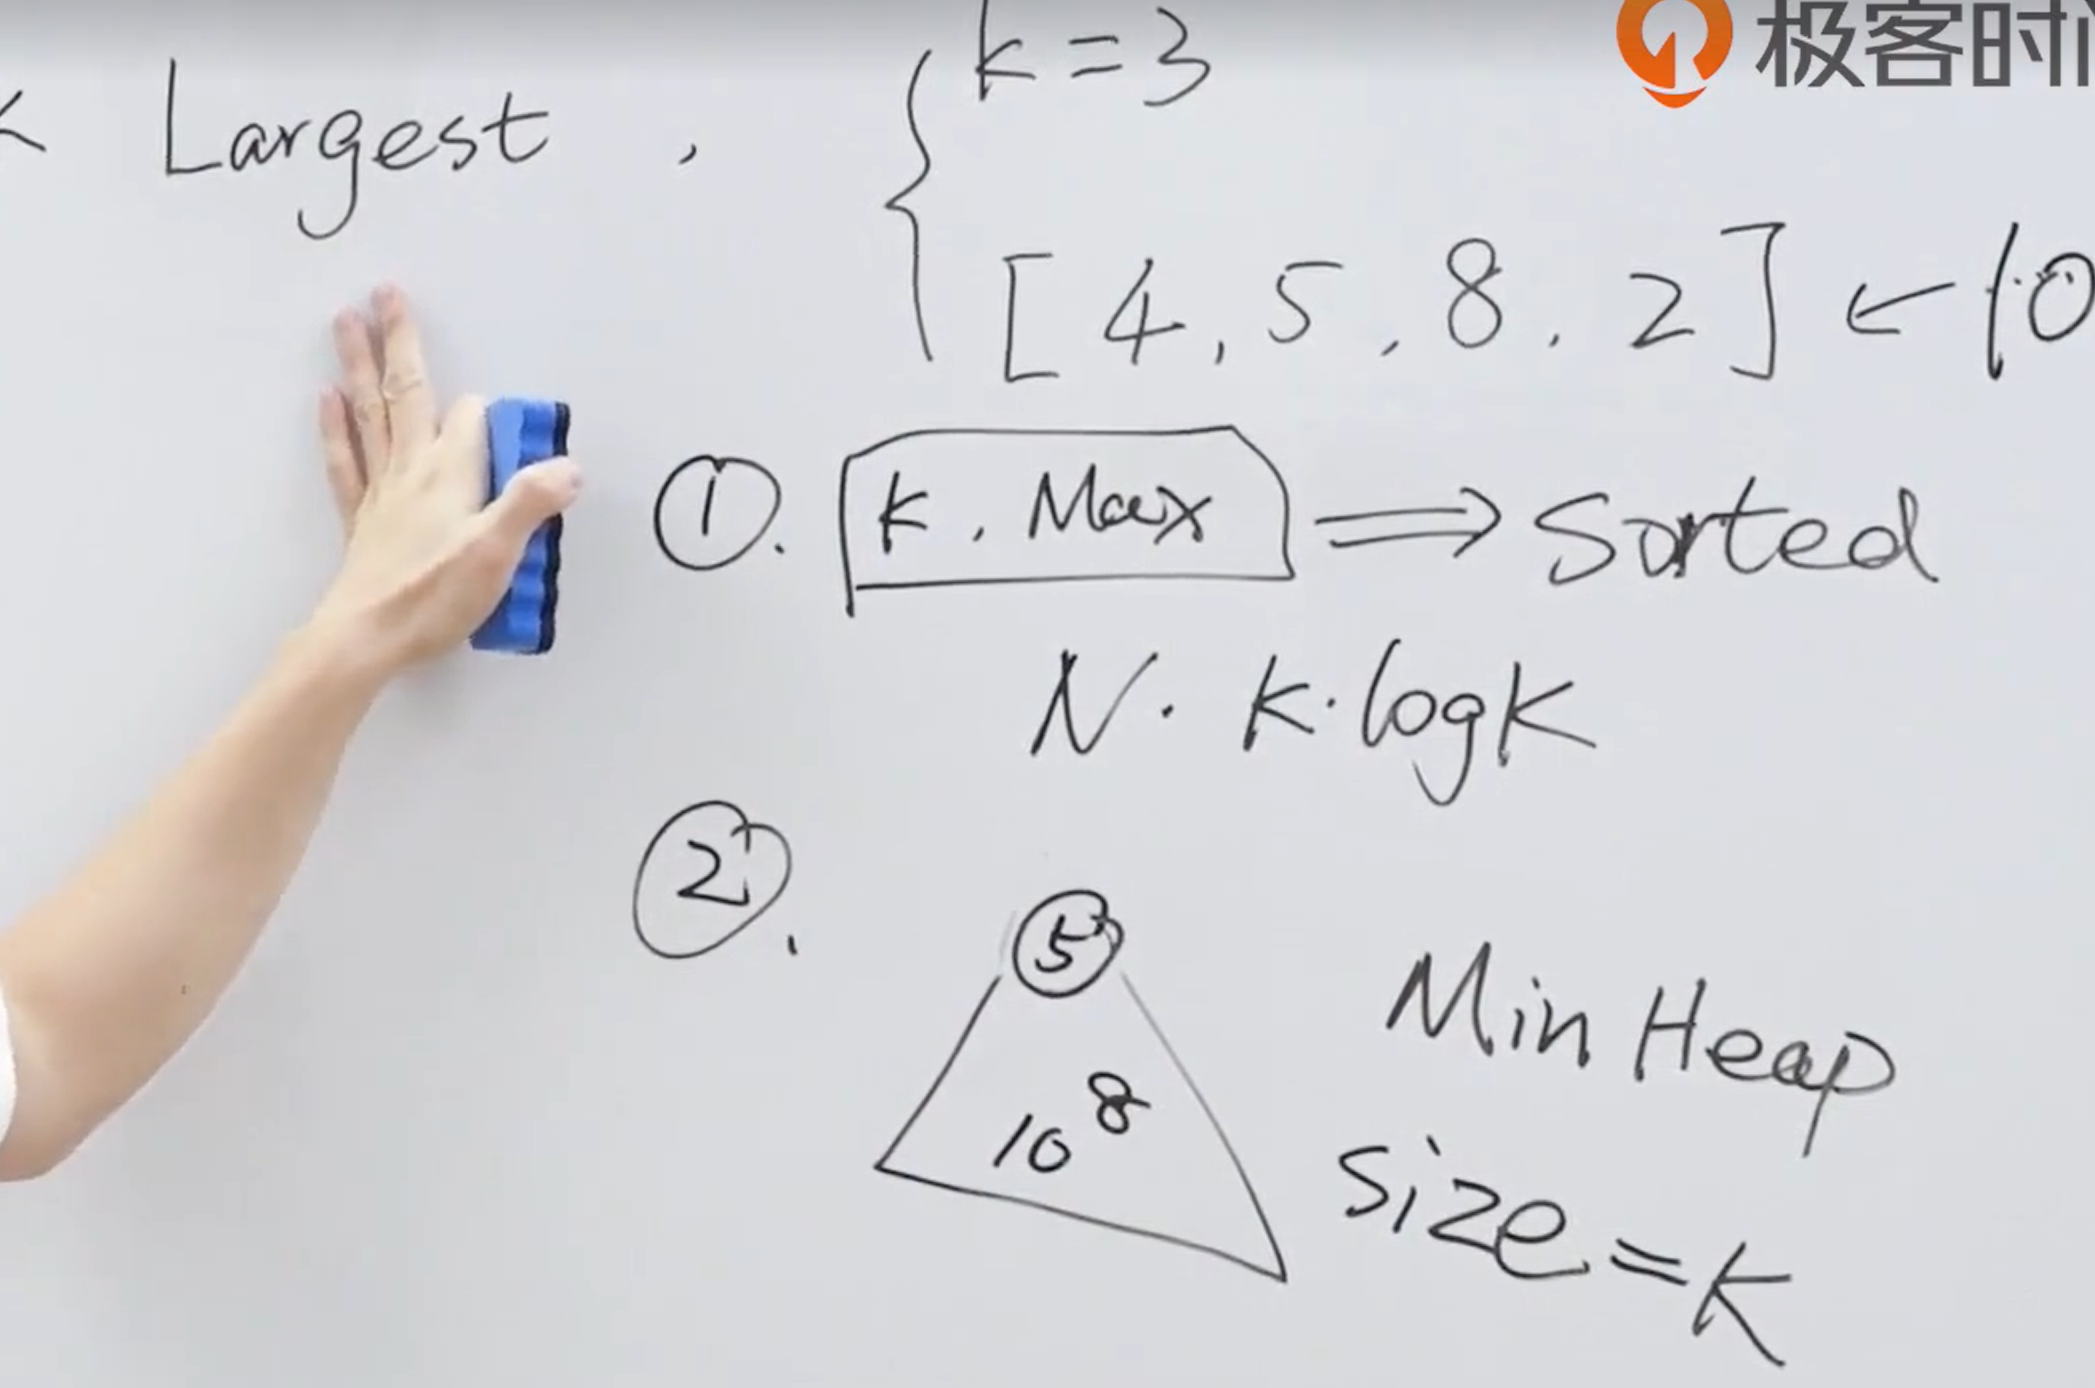 极客时
k = 3
Largest ,
[ 4, 5, 8, 2 ] ← 10
①. k, Max ⇒ Sorted
N · k · logk
②.
5
10 8
Min Heap
size = k